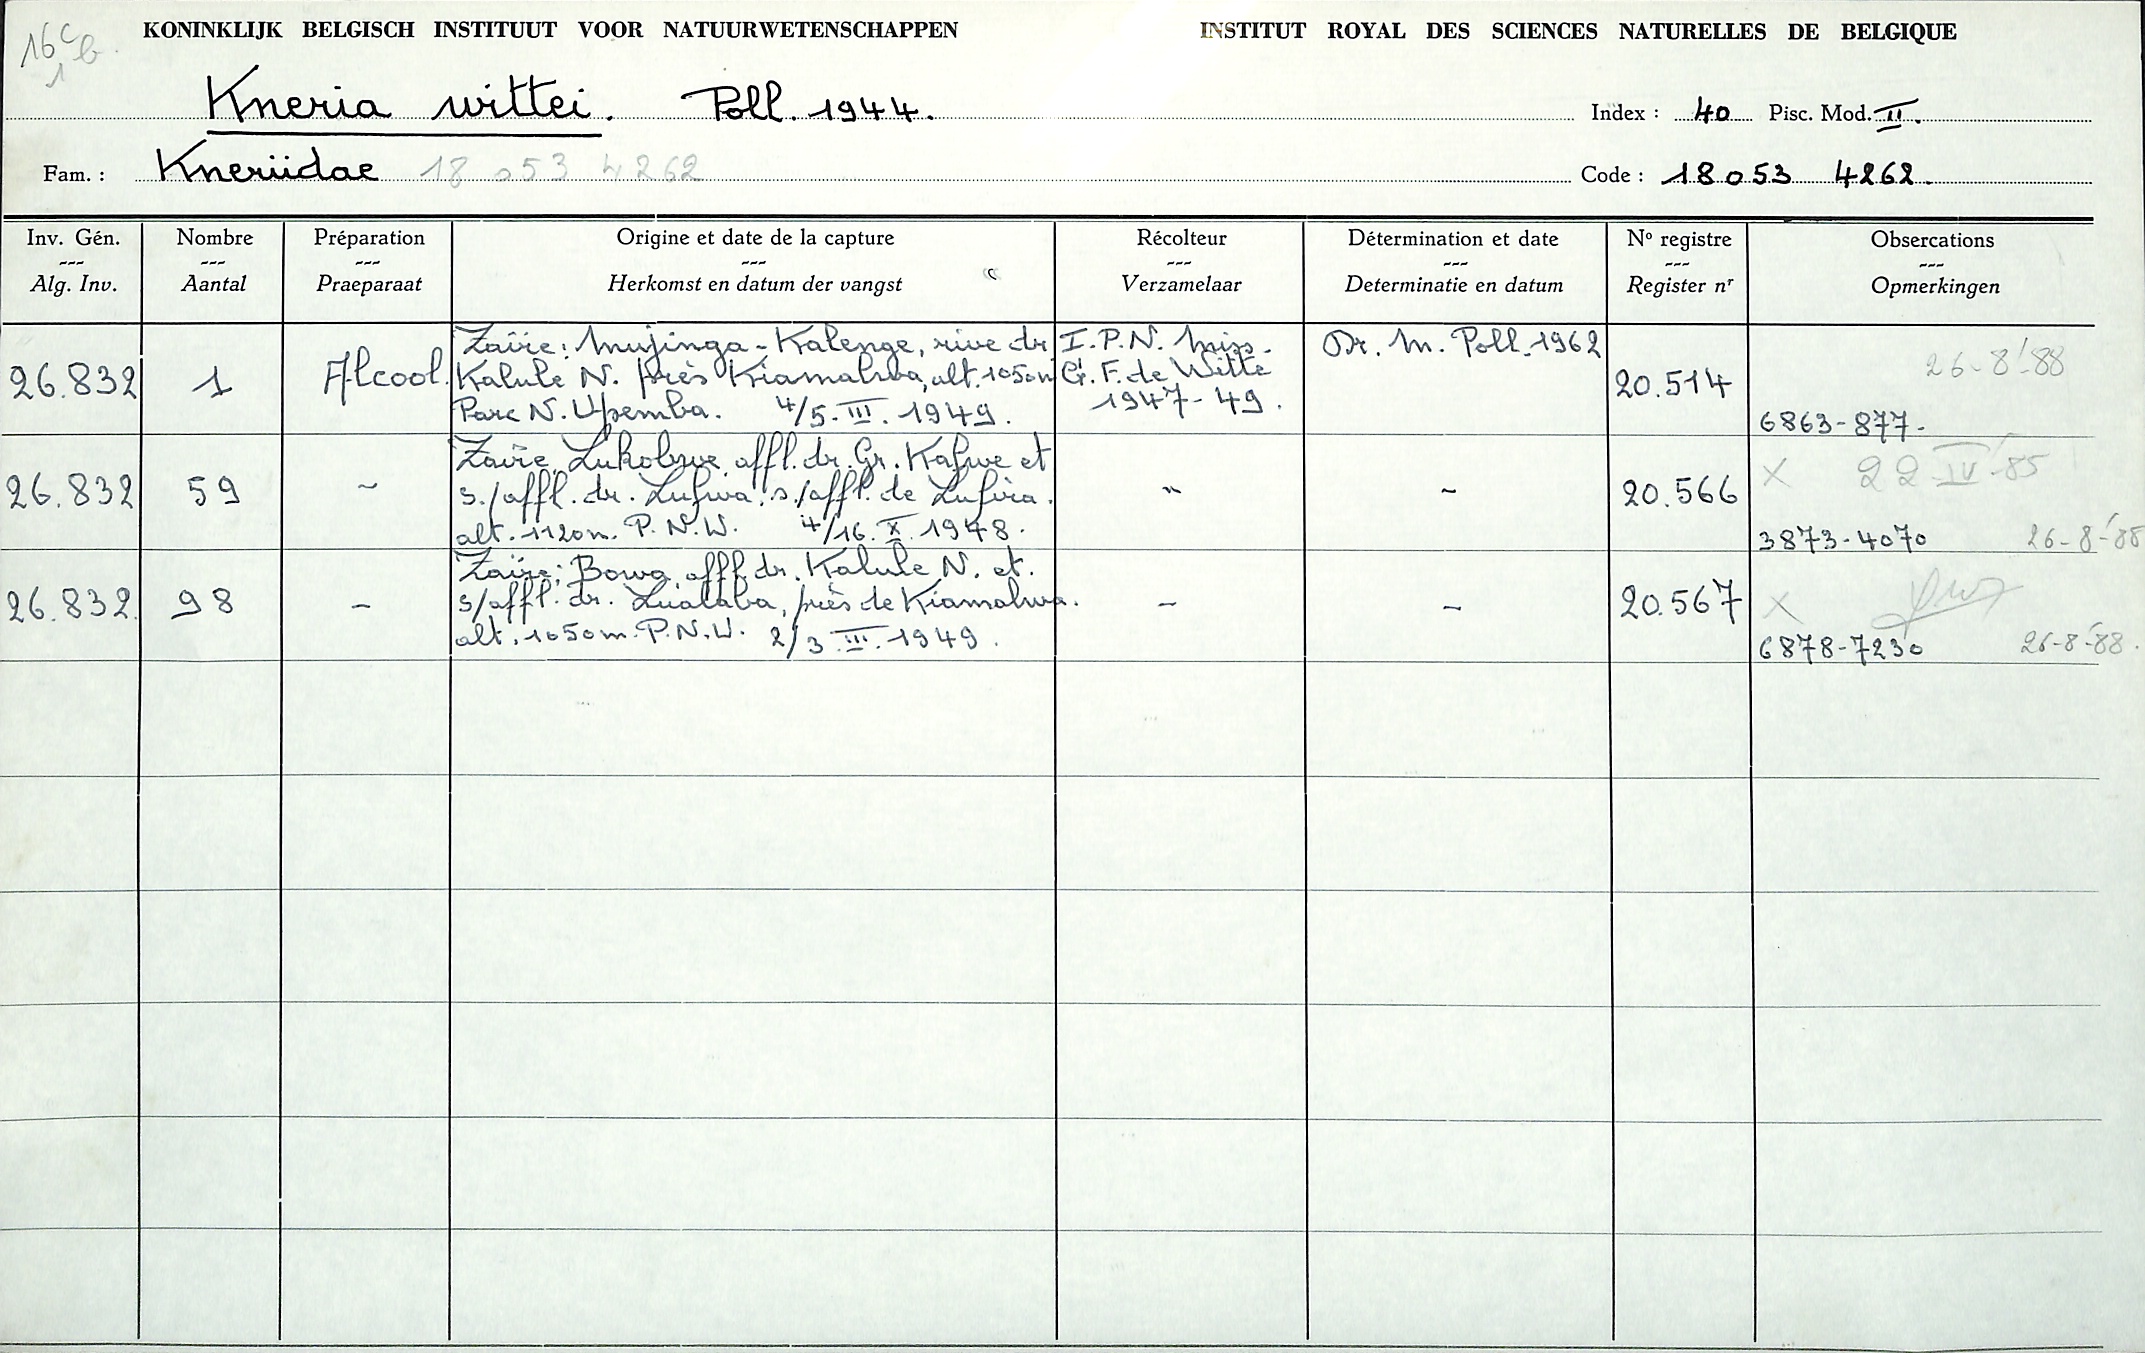 16 c b.
1
KONINKLIJK BELGISCH INSTITUUT VOOR NATUURWETENSCHAPPEN
INSTITUT ROYAL DES SCIENCES NATURELLES DE BELGIQUE
Kneria wittei. Poll. 1944.
Index : 40 Pisc. Mod. II.
Fam. : Kneriidae 18 053 4262
Code : 18 053 4262.
Inv. Gén. Nombre Préparation Origine et date de la capture Récolteur Détermination et date Nº registre Obsercations
Alg. Inv. Aantal Praeparaat Herkomst en datum der vangst Verzamelaar Determinatie en datum Register nr Opmerkingen
26.832 1 Alcool.
Zaïre: Mujinga-Kalenge, rive dr
Kalule N. près Kiamalwa, alt. 1050m
Parc N. Upemba. 4/5. III. 1949.
I.P.N. Miss.
G. F. de Witte
1947-49.
Dr. M. Poll. 1962
20.514
26-8-'88
6863-877-
26.832 59 ~
Zaïre, Lukolwe, affl. dr. Gr. Kafwe et
s./affl. dr. Lufwa, s./affl. de Lufira.
alt. 1120m. P.N.U. 4/16. X. 1948.
" ~ 20.566
x 22 IV-85
3873-4070 26-8-'88
26.832 98 -
Zaïre: Bowa, affl. dr. Kalule N. et.
s/affl. dr. Lualaba, près de Kiamalwa.
alt. 1050m. P.N.U. 2/3. III. 1949.
- - 20.567
x
6878-7230 26-8-'88.